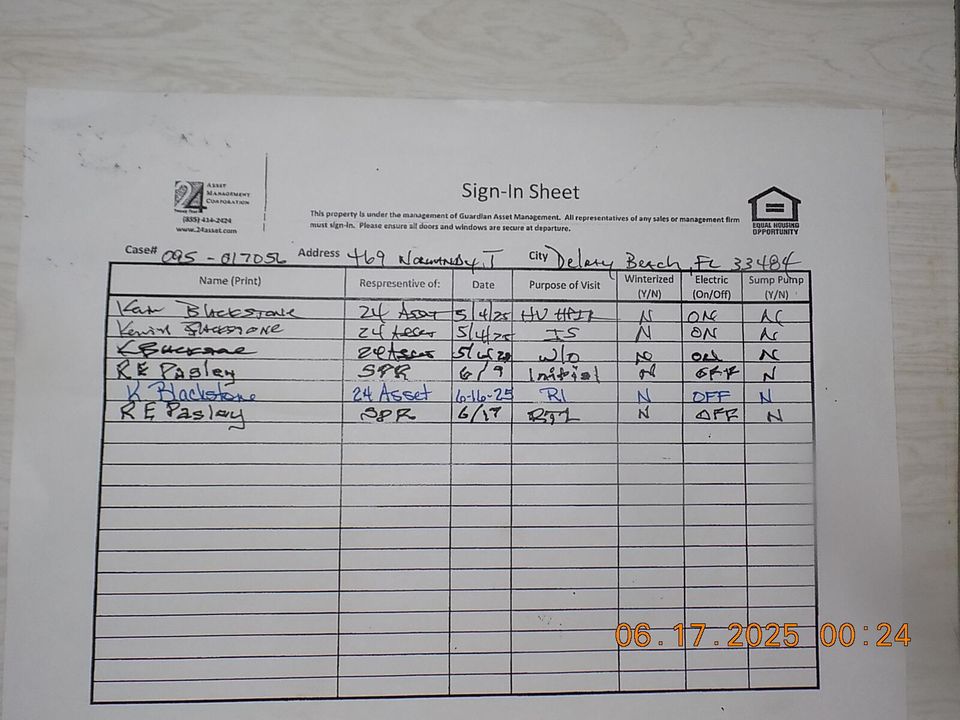 24
ASSET
MANAGEMENT
CORPORATION
(855) 414-2424
www.24asset.com
Sign-In Sheet
This property is under the management of Guardian Asset Management. All representatives of any sales or management firm
must sign-in. Please ensure all doors and windows are secure at departure.
EQUAL HOUSING
OPPORTUNITY
Case# 095-017056 Address 469 Normandy City Delray Beach, FL 33484
Name (Print) Respresentive of: Date Purpose of Visit Winterized (Y/N) Electric (On/Off) Sump Pump (Y/N)
Blackstone 24 Asset 5/4/25 N ON N
Kevin Blackstone 24 Asset 5/4/25 IS N ON N
K Blackstone 24 Asset W/O N ON N
R E Pasley SPR 6/9 Initial N OFF N
K Blackstone 24 Asset 6-16-25 RI N OFF N
R E Pasley SPR 6/17 N OFF N
06.17.2025 00:24